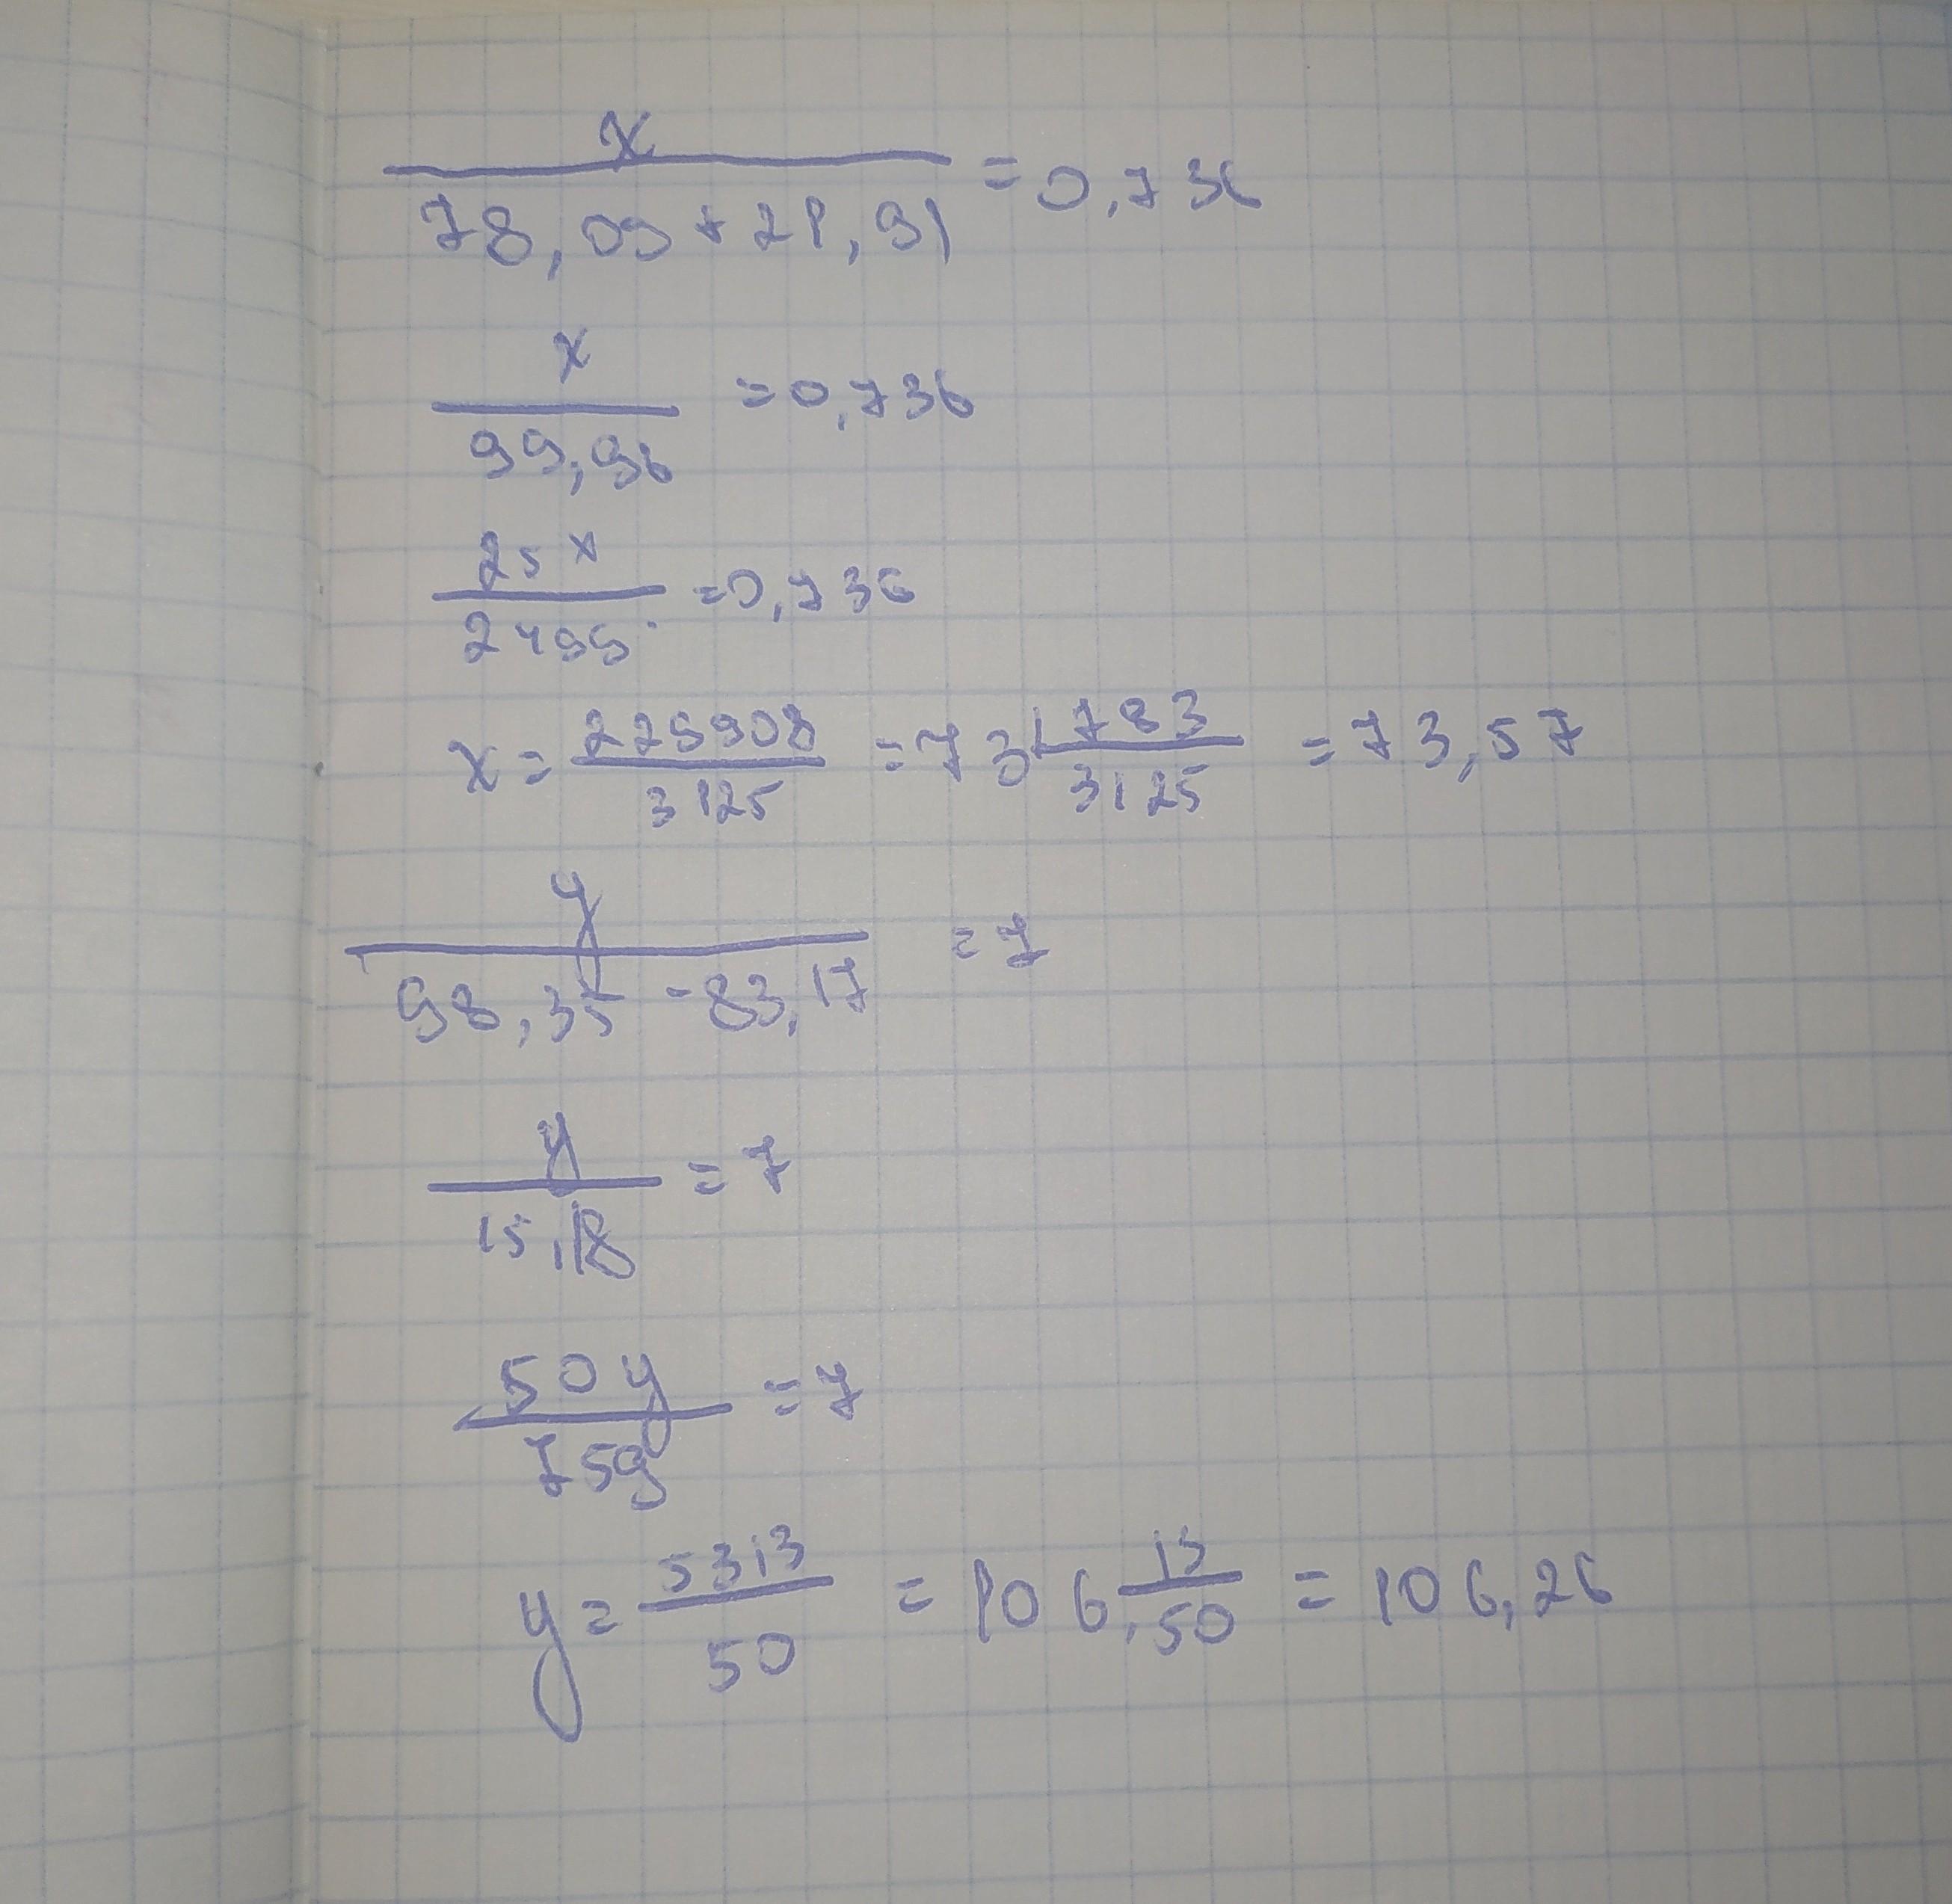 x / 78,09 + 21,91 = 0,736
x / 99,96 = 0,736
25x / 2499 = 0,736
x = 229908 / 3125 = 73 1783 / 3125 = 73,57
y / 98,35 - 83,17 = 7
y / 15,18 = 7
50y / 759 = 7
y = 5313 / 50 = 106 13 / 50 = 106,26